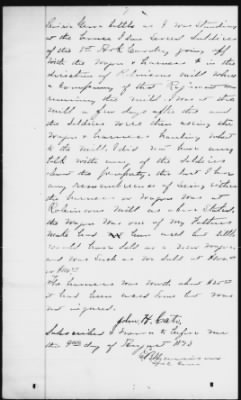 7
as I was Standing
at the House I saw several Soldiers
of the 5th Cavalry going off
with the Wagon & harness & in the
direction of Robinsons mill where
a Company of that Regiment was
running the mill. I was at the
mill a few days after this and
the Soldiers were then using the
Wagon & harness hauling wheat
to the mill. I did not have any
talk with any of the Soldiers
about the property. the last I have
any remembrance of seeing either
the harness or Wagon was at
Robinsons Mill as above Stated.
the Wagon was one of my Fathers
make had been used but little
would have sold as a new wagon
and was such as we sold at
or
The harness was worth about $25
it had been used some but was
not injured.
John H. Cato.
Subscribed & sworn to before me
the day of August 1873